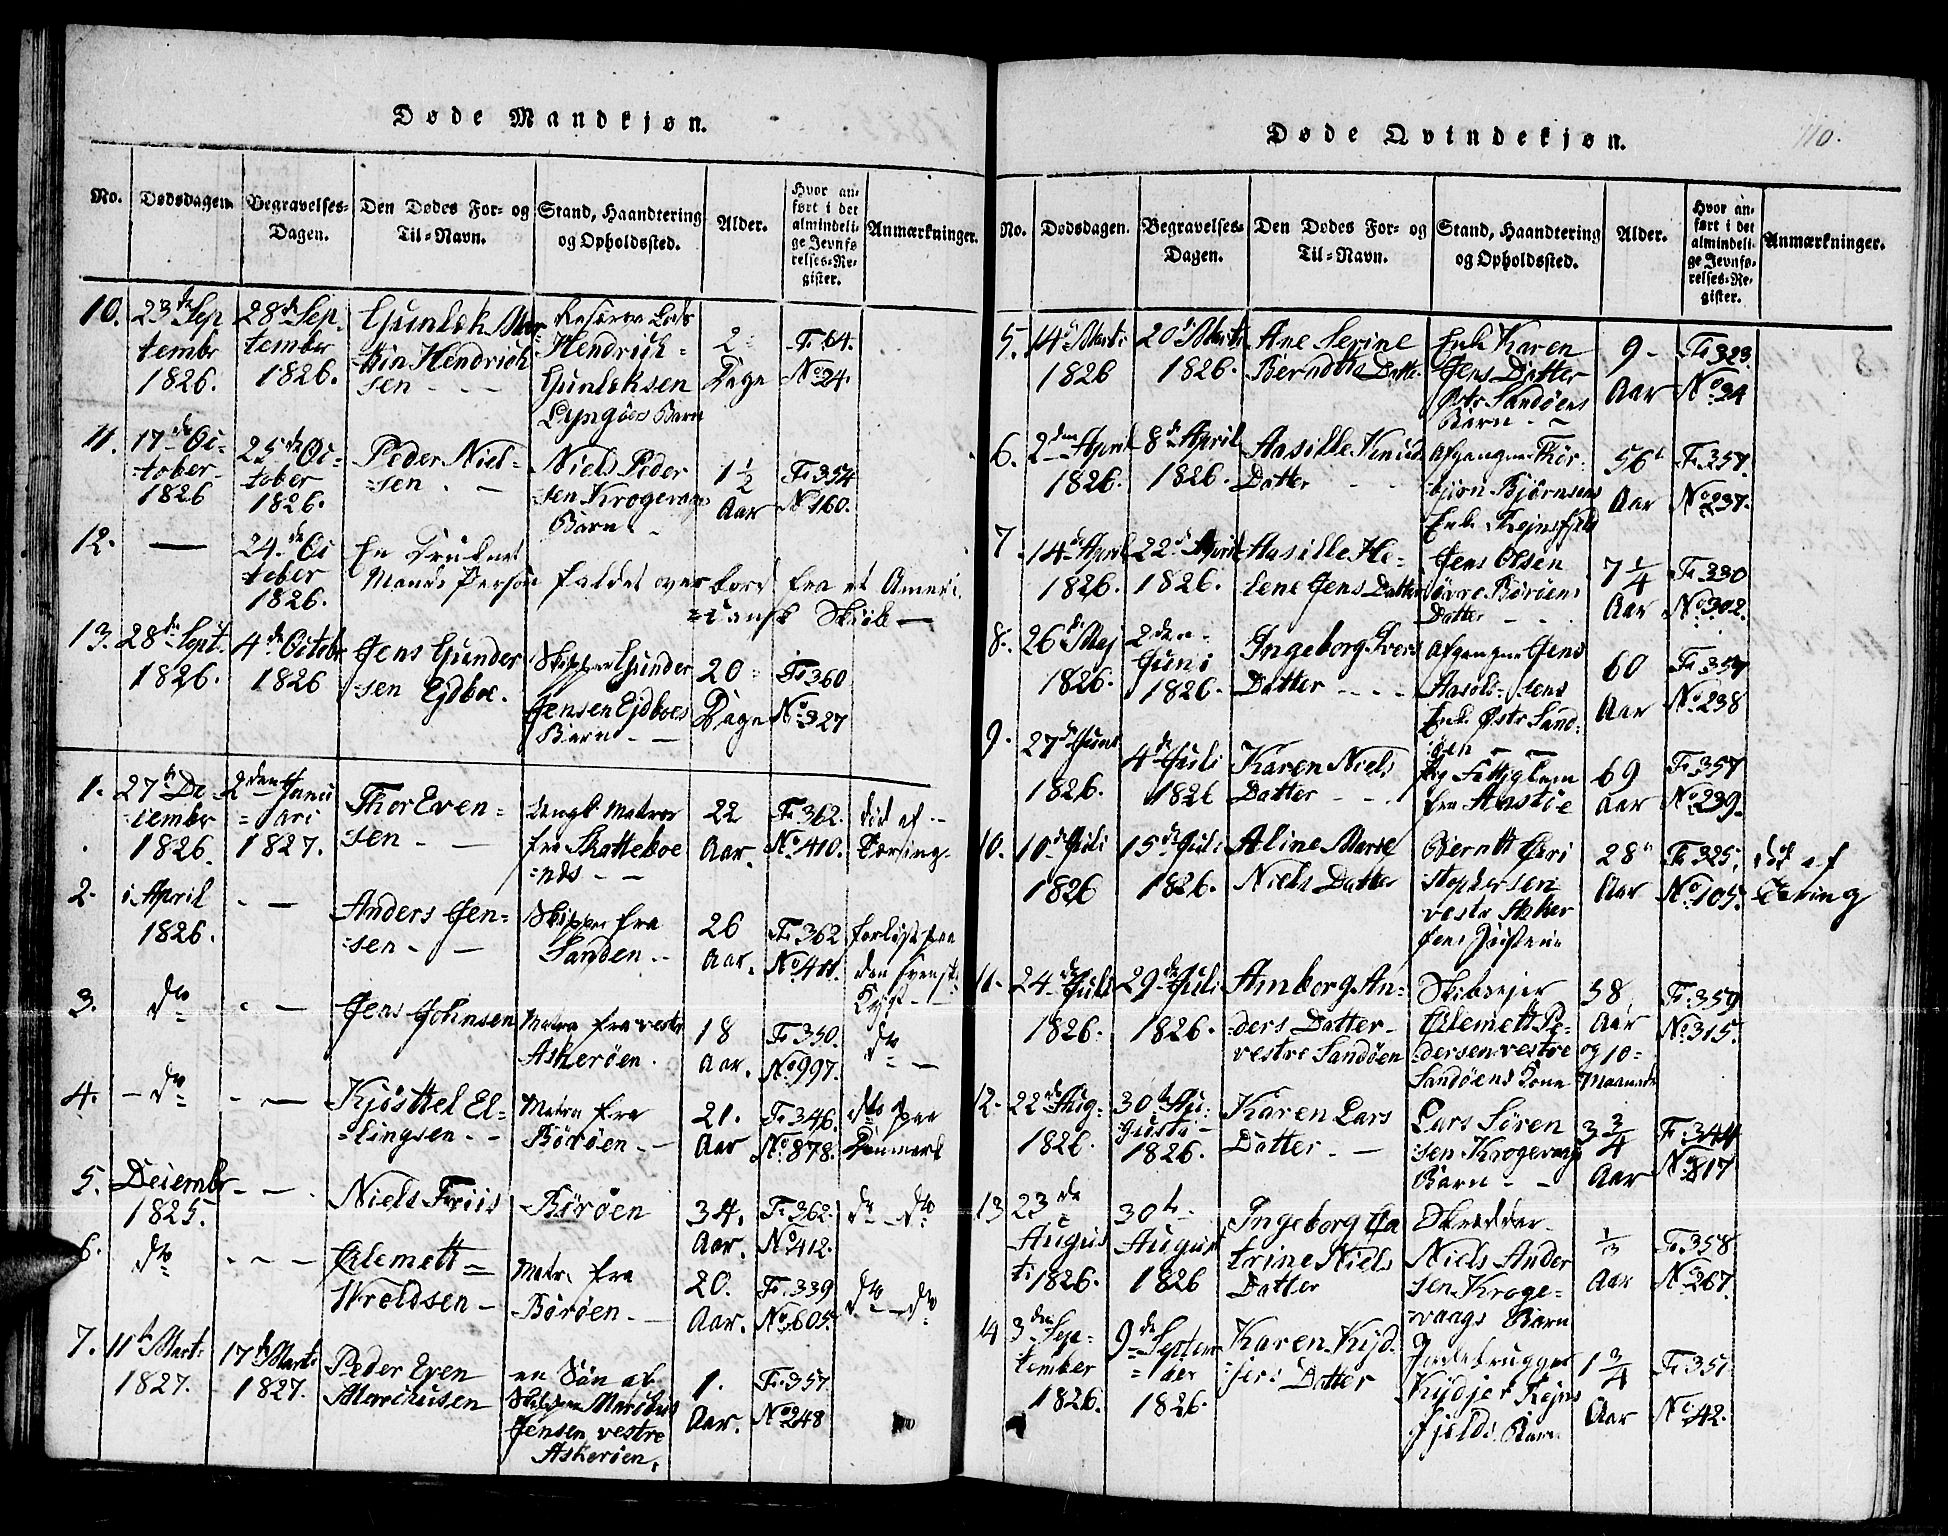 Døde Mandkjøn.
No. Dødsdagen. Begravelses-Dagen. Den Dødes For- og Til-Navn. Stand, Haandtering og Opholdssted. Alder. Hvor anført i det almindelige Jevnførelses-Register. Anmærkninger.
10. 23de Sep
tember
1826.
28de Sep
tember
1826.
Gunlek Mar
tin Hendrich
sen
Hendrich
Gunleksen
Lyngöes Barn
2
Dage
Fo. 64.
No. 24.
11. 17de Oc-
tober
1826
25de Oc-
tober
1826.
Peder Niel-
sen
Niels Peder
sen Krogevaag
Barn
1 1/2
Aar
Fo. 354
No. 160.
12. —
24de Oc
tober
1826.
En Druknet
Mands Person faldet over bord fra et Ameri
kansk Skib —
13. 28de Sept.
1826.
4de Octobr
1826
Jens Gunder
sen Ejdboe.
Skipper Gunder
Jensen Ejdboes
Barn
20
Dage
Fo. 360
No. 327
1. 27de De-
cember
1826.
2den Janu
ari
1827.
Thor Even-
sen
Matros
fra Skatteboe
22
Aar.
Fo. 362.
No. 410.
død af
Tæring
2. i April
1826.
Anders Jen-
sen
Skipper fra
Sanden
26
Aar.
Fo. 362
No. 411.
forlist paa
den svenske
Kyst
3. do
Jens Johnsen
Matros fra vestr
Askerøen.
18
Aar.
Fo. 350.
No. 997.
do
4. do
Kjösttel El-
lingsen
Matros fra
Börøen
21.
Aar
Fo. 346.
No. 878.
do paa
Danmark
5. Decembr
1825.
Niels Friis
Börøen
34.
Aar.
Fo. 362.
No. 412.
do do
6. do
Clemett
Wroldsen
Matr. fra
Börøen
20.
Aar.
Fo. 339
No. 605.
do do
7. 11te Marti
1827.
17de Marti
1827.
Peder Even
Marchusen
en Søn af
Skipper Marchus
Jensen vestre
Askerøen.
1.
Aar.
Fo. 357.
No. 248
Døde Qvindekjøn.
110.
No. Dødsdagen. Begravelses-Dagen. Den Dødes For- og Til-Navn. Stand, Haandtering og Opholdssted. Alder. Hvor anført i det almindelige Jevnførelses-Register. Anmærkninger.
5. 14de Marti
1826
20de Marti
1826.
Ane Serine
Berndtta Datter
Enke Karen
Jens Datter
Østr Sandøens
Barn
9
Aar
Fo. 323.
No. 34
6. 2den April
1826.
8de April
1826.
Aasille Knud
Datter
Afgangne Thor
bjørn Bjørnsens
Enke
56
Aar
Fo. 357.
No. 237.
7. 14de April
1826.
22de April
1826.
Aasille He-
lene Jens Datter
Jens Olsen
øvre Børøens
Datter
7 1/4
Aar
Fo. 330
No. 302.
8. 26de Maj
1826.
2den
Juni
1826.
Ingeborg Ivers
Datter
Afgangne Jens
Enke Østr Sand-
øen
60
Aar
Fo. 357
No. 238
9. 27de Juni
1826.
4de Juli
1826
Karen Niels
Datter
fra
69
Aar
Fo. 357
No. 239.
10. 10de Juli
1826
15de Juli
1826.
Aline Marie
Niels Datter
Berntt Chri
stophersen
vestr Asker
øens Hustrue
28
Aar
Fo. 325.
No. 105.
død af
Tæring
11. 24de Juli
1826.
29de Juli
1826.
Amborg An-
ders Datter
vestre Sandøen
Skibsejer
Clemett Pe-
dersen vestre
Sandøens Kone
58
Aar
og 10
Maaneder
Fo. 359
No. 315.
12. 22de Aug-
1826.
30te Au-
gusti
1826.
Karen Lars
Datter
Lars Søren
sen Krogevaag
Barn
3 3/4
Aar
Fo. 344
No. 817
13. 23de
August
i 1826.
30te
August
1826
Ingeborg Ca
trine Niels
Datter
Skrædder
Niels Ander
sen Kroge-
vaags Barn
1/3
Aar
Fo. 358.
No. 267.
14. 3den Sep-
tember
1826.
9de Septem
ber
1826.
Karen Kyd-
jers Datter
Jordbrugger
Kydjer Rejns
fjelds Barn
1 3/4
Aar
Fo. 351.
No. 42.